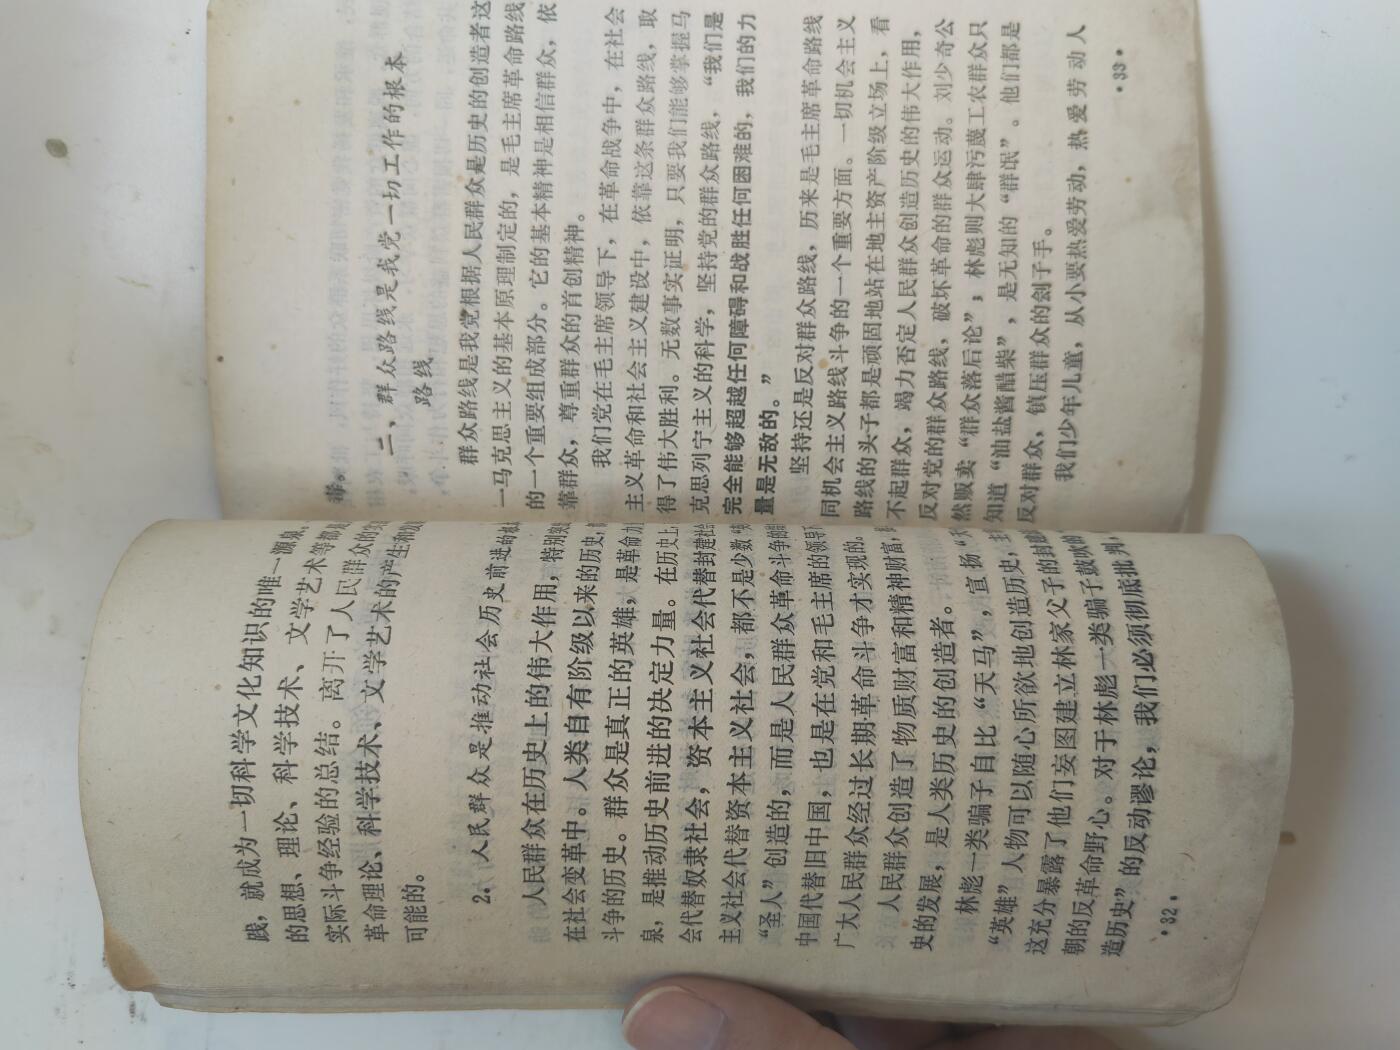 践，就成为一切科学文化知识的唯一源泉。
的思想、理论、科学技术、文学艺术等都是
实际斗争经验的总结。离开了人民群众的实
革命理论、科学技术、文学艺术的产生和发
可能的。
2. 人民群众是推动社会历史前进的
人民群众在历史上的伟大作用，特别
在社会变革中。人类自有阶级以来的历史，
斗争的历史。群众是真正的英雄，是革命力
泉，是推动历史前进的决定力量。在历史上，
会代替奴隶社会，资本主义社会代替封建社会
主义社会代替资本主义社会，都不是少数
“圣人”创造的，而是人民群众革命斗争的
中国代替旧中国，也是在党和毛主席的领导下
广大人民群众经过长期革命斗争才实现的。
人民群众创造了物质财富和精神财富，
史的发展，是人类历史的创造者。
林彪一类骗子自比“天马”，宣扬
“英雄”人物可以随心所欲地创造历史，
这充分暴露了他们妄图建立林家父子的封建
朝的反革命野心。对于林彪一类骗子鼓吹的
造历史”的反动谬论，我们必须彻底批判，
•32•
毒。
二、群众路线是我党一切工作的根本
路线
群众路线是我党根据人民群众是历史的创造者这
一马克思主义的基本原理制定的，是毛主席革命路线
的一个重要组成部分。它的基本精神是相信群众，依
靠群众，尊重群众的首创精神。
我们党在毛主席领导下，在革命战争中，在社会
主义革命和社会主义建设中，依靠这条群众路线，取
得了伟大胜利。无数事实证明，只要我们能够掌握马
克思列宁主义的科学，坚持党的群众路线，“我们是
完全能够超越任何障碍和战胜任何困难的，我们的力
量是无敌的。”
坚持还是反对群众路线，历来是毛主席革命路线
同机会主义路线斗争的一个重要方面。一切机会主义
路线的头子都是顽固地站在地主资产阶级立场上，看
不起群众，竭力否定人民群众创造历史的伟大作用，
反对党的群众路线，破坏革命的群众运动。刘少奇公
然贩卖“群众落后论”；林彪则大肆污蔑工农群众只
知道“油盐酱醋柴”，是无知的“群氓”。他们都是
反对群众，镇压群众的刽子手。
我们少年儿童，从小要热爱劳动，热爱劳动人
•33•